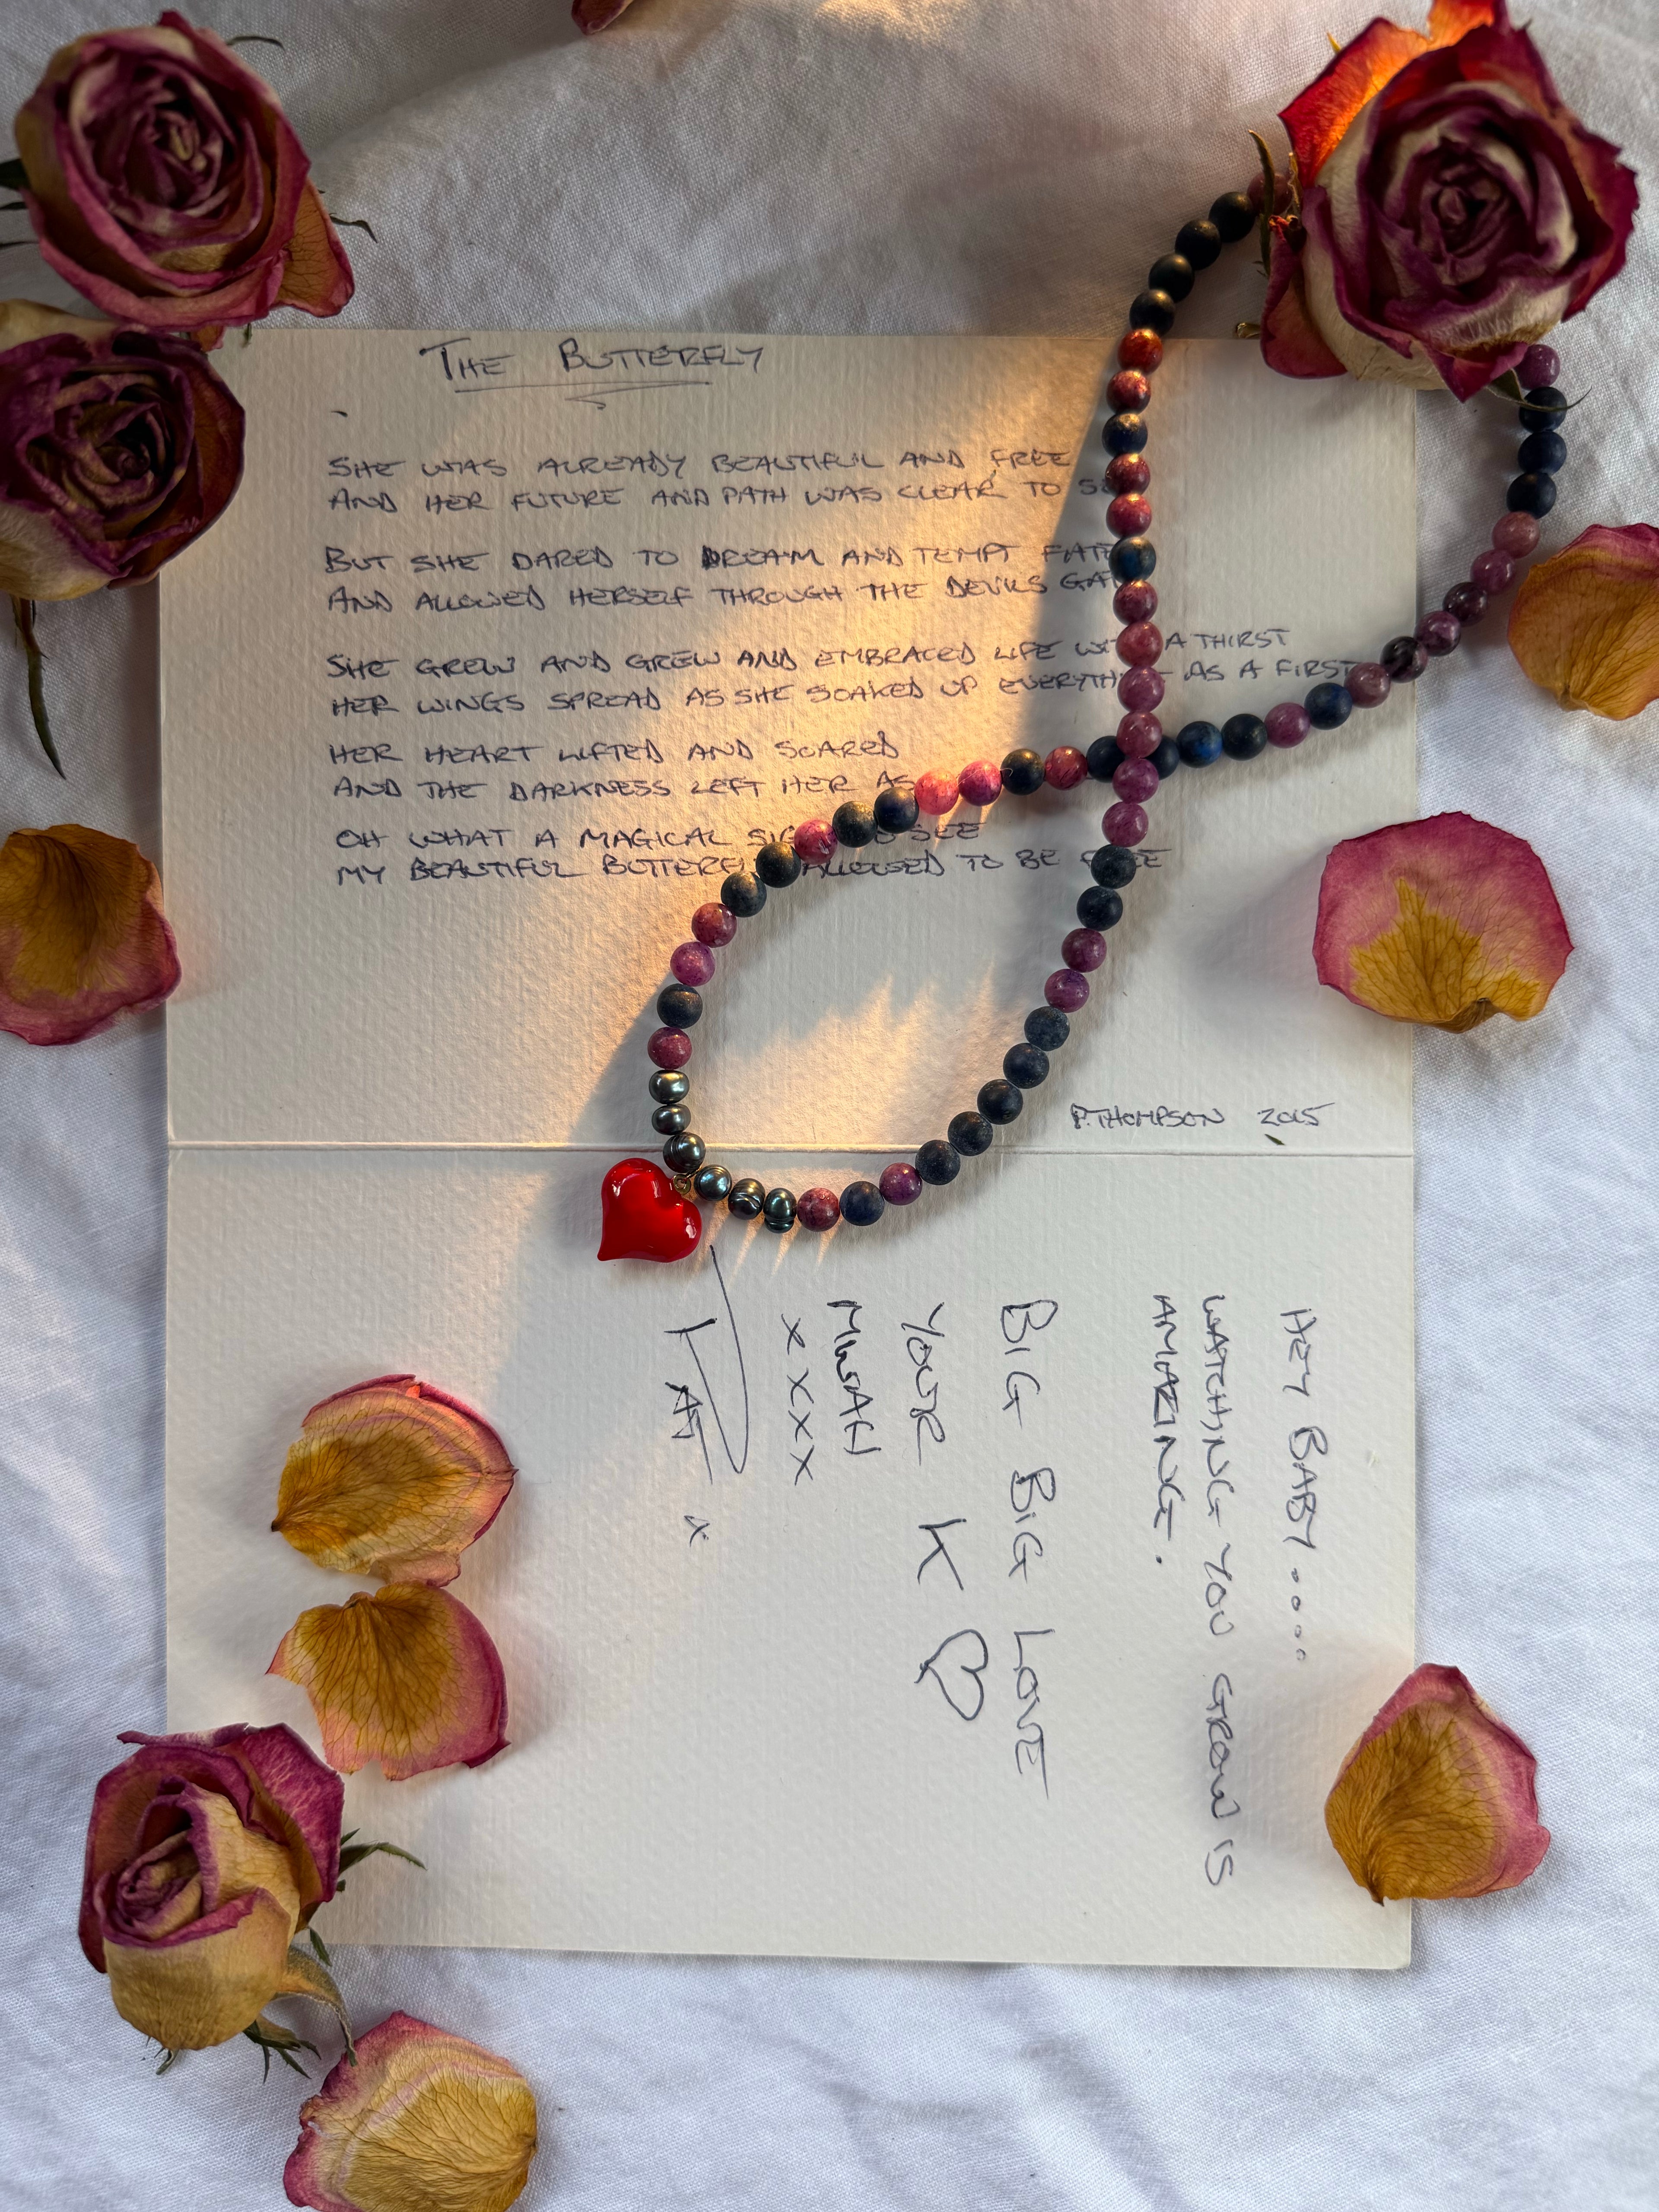 THE BUTTERFLY
SHE WAS ALREADY BEAUTIFUL AND FREE
AND HER FUTURE AND PATH WAS CLEAR TO
BUT SHE DARED TO DREAM AND TEMPT FATE
AND ALLOWED HERSELF THROUGH THE DEVILS
SHE GREW AND GREW AND EMBRACED LIFE WITH A THIRST
HER WINGS SPREAD AS SHE SOAKED UP EVERYTHING AS A FIRST
HER HEART LIFTED AND SOARED
AND THE DARKNESS LEFT HER
OH WHAT A MAGICAL SEE
MY BEAUTIFUL BUTTERFLY ALLOWED TO BE FREE
P.THOMPSON 2015
HEY BABY....
WATCHING YOU GROW IS
AMAZING.
BIG BIG LOVE
YOUR K ♡
MWAH
x x x x
PAT x